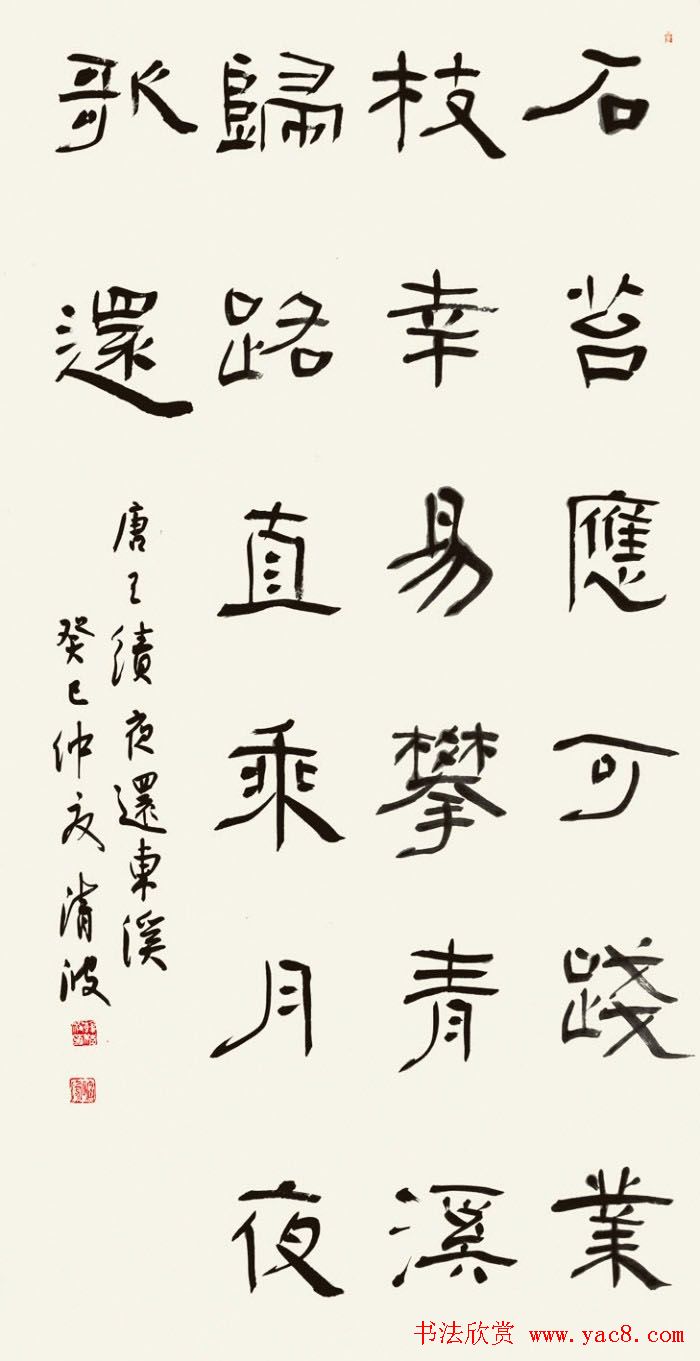 石苔應可踐業
枝幸易攀青溪
歸路直乘月夜
歌還
唐王績夜還東溪
癸巳仲夏波
书法欣赏 www.yac8.com